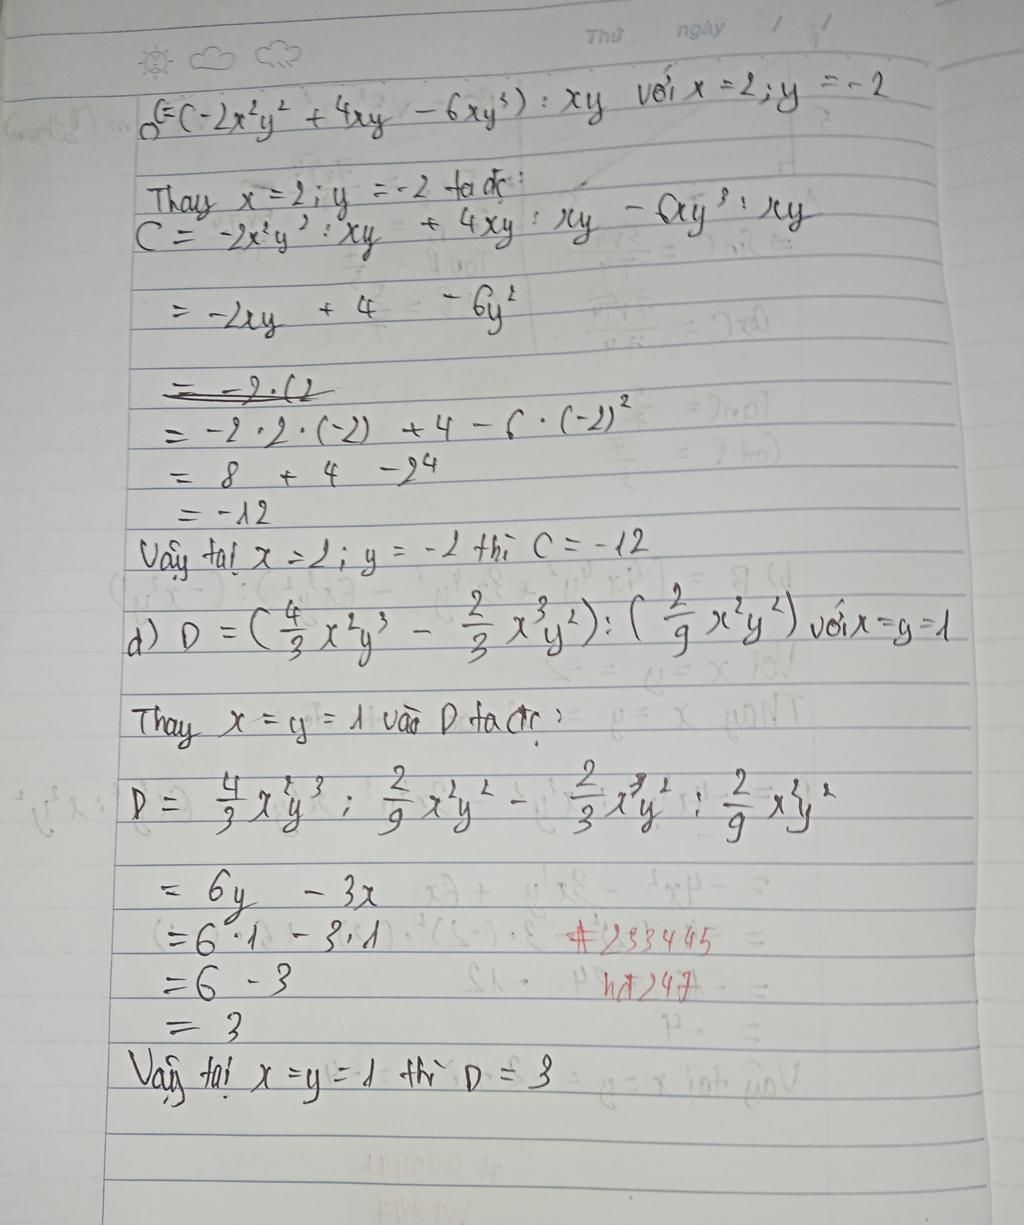 Thứ ngày / /
C = (-2x²y² + 4xy - 6xy³) : xy với x = 2 ; y = -2
Thay x = 2 ; y = -2 ta đc :
C = -2x²y² : xy + 4xy : xy - 6xy³ : xy
= -2xy + 4 - 6y²
= -2.(2
= -2 . 2 . (-2) + 4 - 6 . (-2)²
= 8 + 4 - 24
= -12
Vậy tại x = 2 ; y = -2 thì C = -12
d) D = (4/3 x²y³ - 2/3 x³y²) : (2/9 x²y²) với x = y = 1
Thay x = y = 1 vào D ta đc :
D = 4/3 x²y³ : 2/9 x²y² - 2/3 x³y² : 2/9 x²y²
= 6y - 3x
= 6 . 1 - 3 . 1 #233445
= 6 - 3 hd247
= 3
Vậy tại x = y = 1 thì D = 3